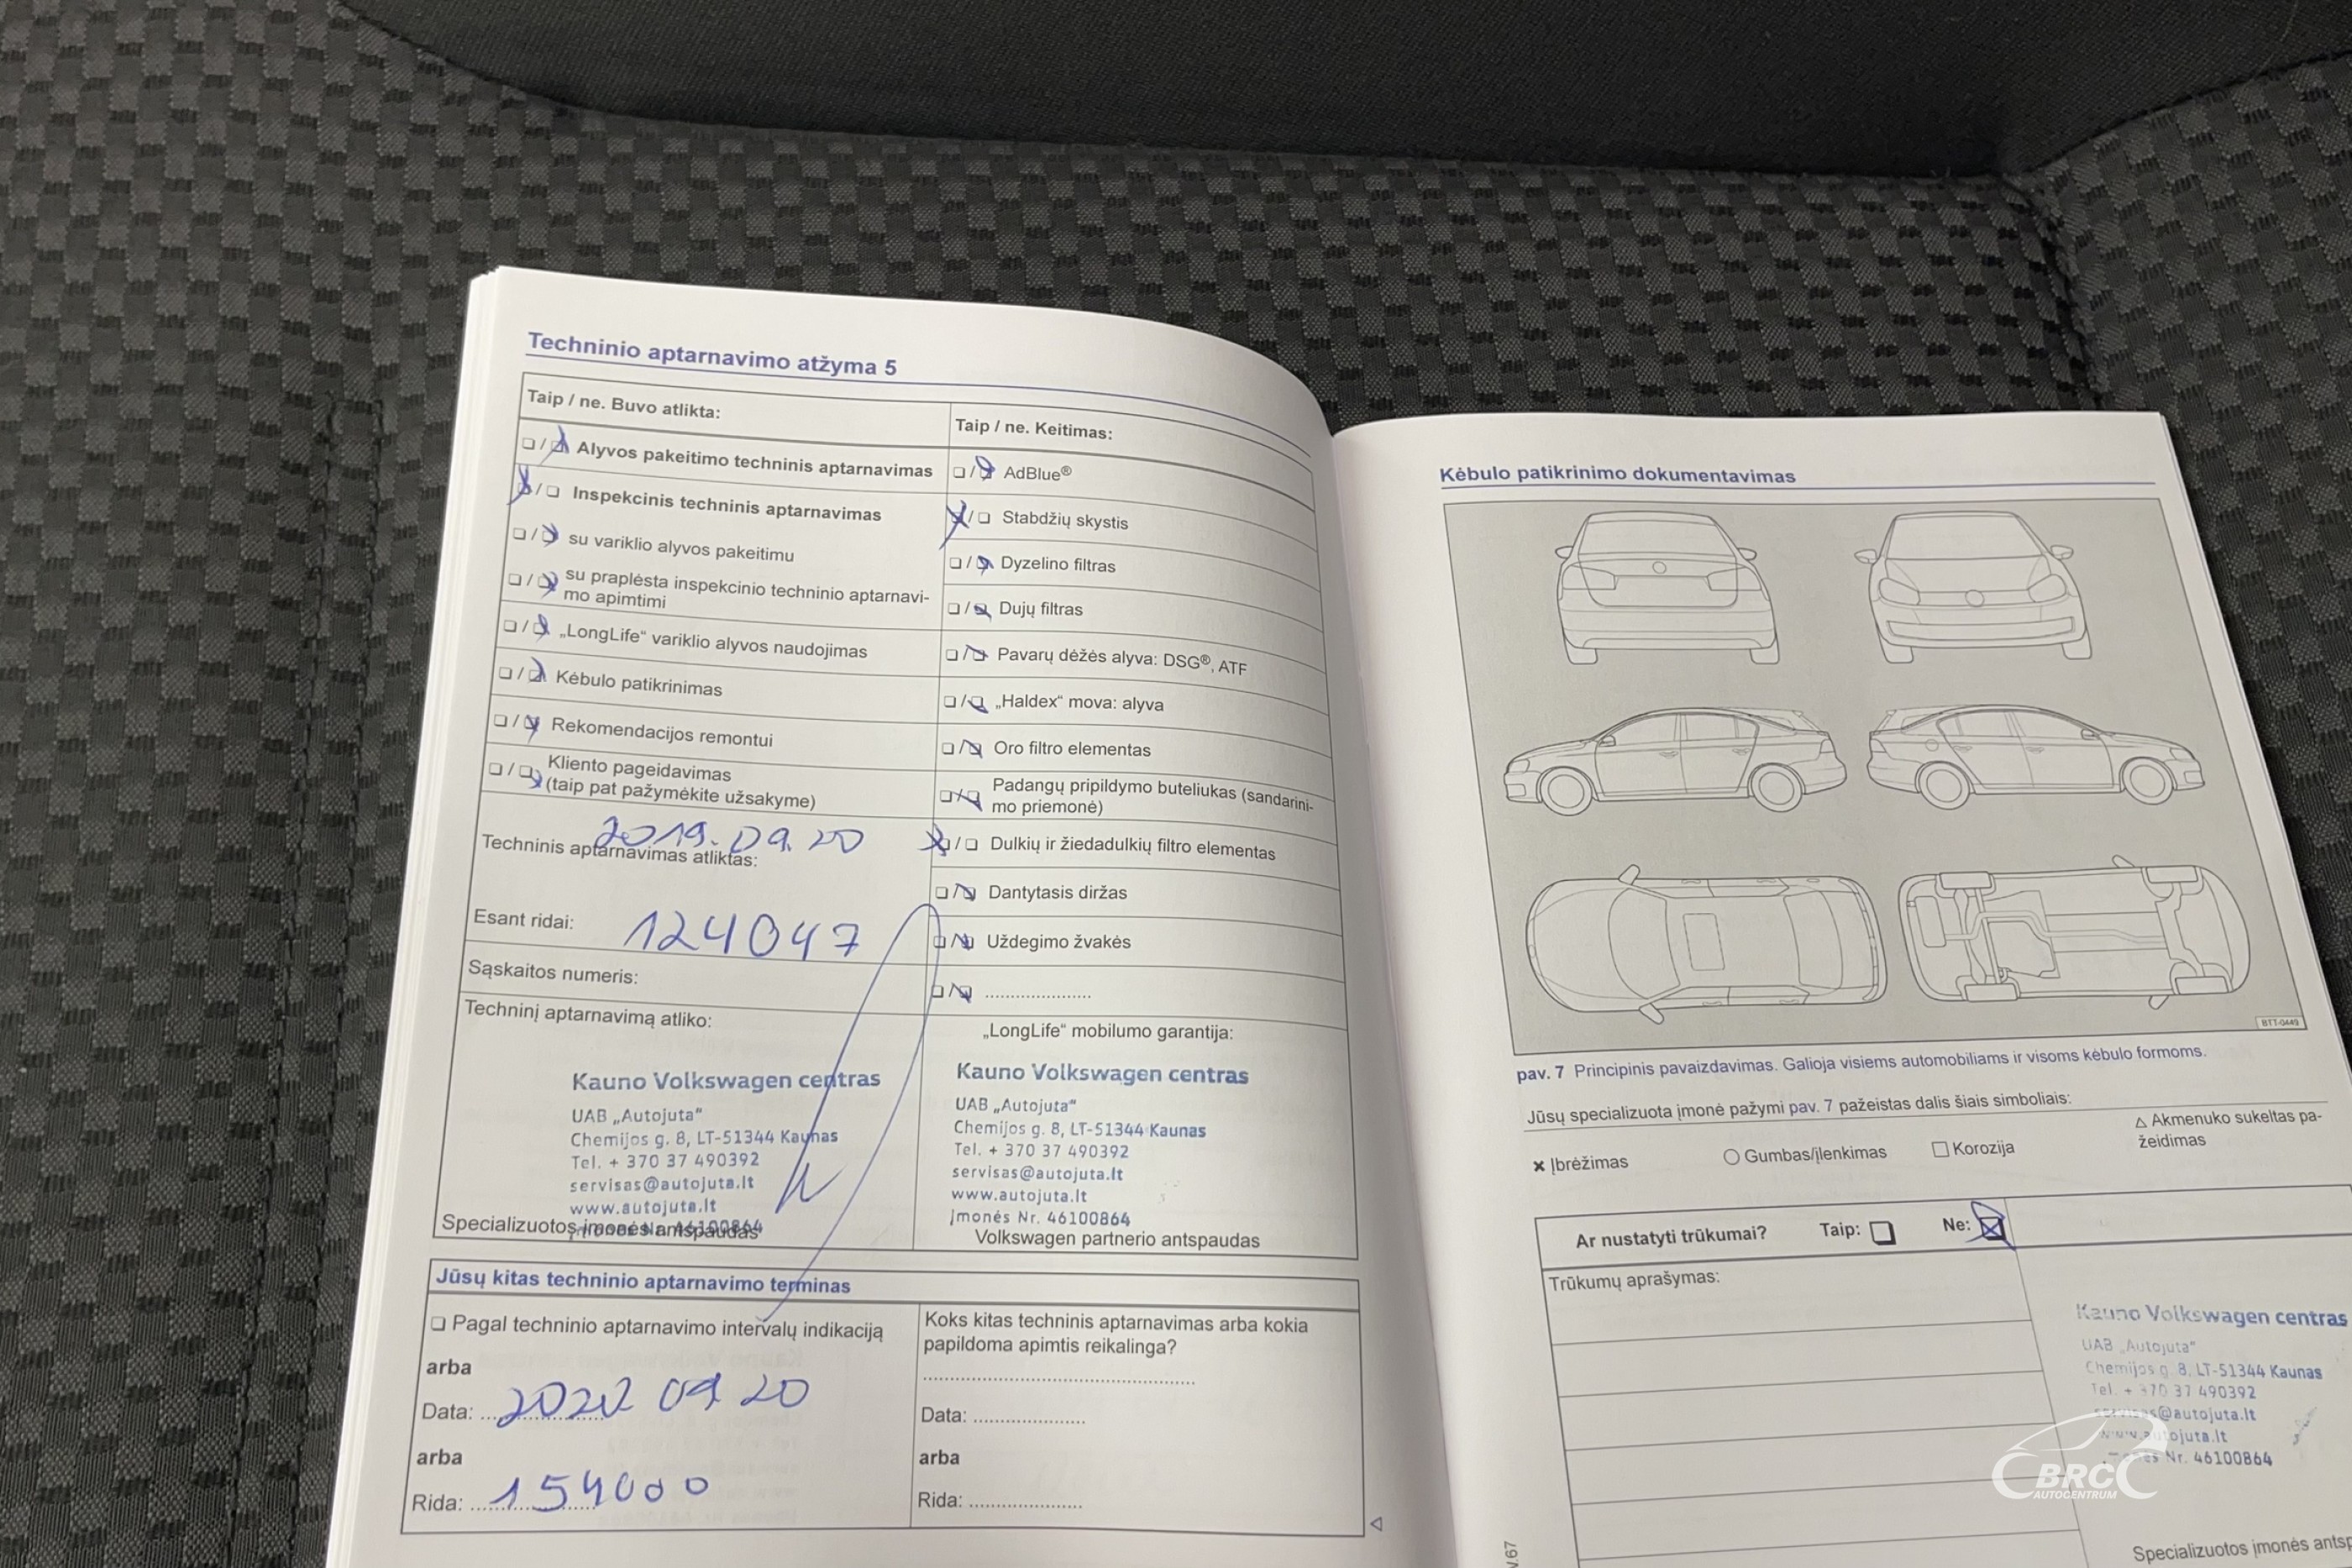 Techninio aptarnavimo atžyma 5
Taip / ne. Buvo atlikta:
Alyvos pakeitimo techninis aptarnavimas
Inspekcinis techninis aptarnavimas
su variklio alyvos pakeitimu
su praplėsta inspekcinio techninio aptarnavi-
mo apimtimi
„LongLife“ variklio alyvos naudojimas
Kėbulo patikrinimas
Rekomendacijos remontui
Kliento pageidavimas
(taip pat pažymėkite užsakyme)
Techninis aptarnavimas atliktas: 2019.09.20
Esant ridai: 124047
Sąskaitos numeris:
Techninį aptarnavimą atliko:
Kauno Volkswagen centras
UAB „Autojuta“
Chemijos g. 8, LT-51344 Kaunas
Tel. + 370 37 490392
servisas@autojuta.lt
www.autojuta.lt
Įmonės Nr. 46100864
Specializuotos įmonės antspaudas
Taip / ne. Keitimas:
AdBlue®
Stabdžių skystis
Dyzelino filtras
Dujų filtras
Pavarų dėžės alyva: DSG®, ATF
„Haldex“ mova: alyva
Oro filtro elementas
Padangų pripildymo buteliukas (sandarini-
mo priemonė)
Dulkių ir žiedadulkių filtro elementas
Dantytasis diržas
Uždegimo žvakės
„LongLife“ mobilumo garantija:
Kauno Volkswagen centras
UAB „Autojuta“
Chemijos g. 8, LT-51344 Kaunas
Tel. + 370 37 490392
servisas@autojuta.lt
www.autojuta.lt
Įmonės Nr. 46100864
Volkswagen partnerio antspaudas
Jūsų kitas techninio aptarnavimo terminas
Pagal techninio aptarnavimo intervalų indikaciją
arba
Data: 2020 09 20
arba
Rida: 154000
Koks kitas techninis aptarnavimas arba kokia
papildoma apimtis reikalinga?
Data:
arba
Rida:
Kėbulo patikrinimo dokumentavimas
BTT-0449
pav. 7 Principinis pavaizdavimas. Galioja visiems automobiliams ir visoms kėbulo formoms.
Jūsų specializuota įmonė pažymi pav. 7 pažeistas dalis šiais simboliais:
Įbrėžimas
Gumbas/įlenkimas
Korozija
Akmenuko sukeltas pa-
žeidimas
Ar nustatyti trūkumai? Taip: Ne:
Trūkumų aprašymas:
Kauno Volkswagen centras
UAB „Autojuta“
Chemijos g. 8, LT-51344 Kaunas
Tel. + 370 37 490392
servisas@autojuta.lt
www.autojuta.lt
Įmonės Nr. 46100864
BRC
AUTOCENTRUM
Specializuotos įmonės